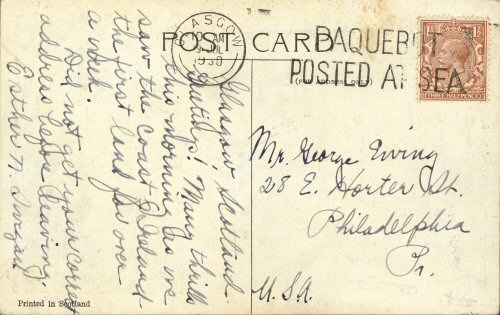 POST CARD
GLASGOW
1930
PAQUEBOT
POSTED AT SEA
THREE HALF PENCE
Glasgow, Scotland.
Greetings! Many thrills
this morning as we
saw the coast of Ireland
the first land for over
a week.
Did not get your correct
address before leaving.
Esther N.
Mr. George Ewing
28 E. Horter St.
Philadelphia
Pa.
U.S.A.
Printed in Scotland